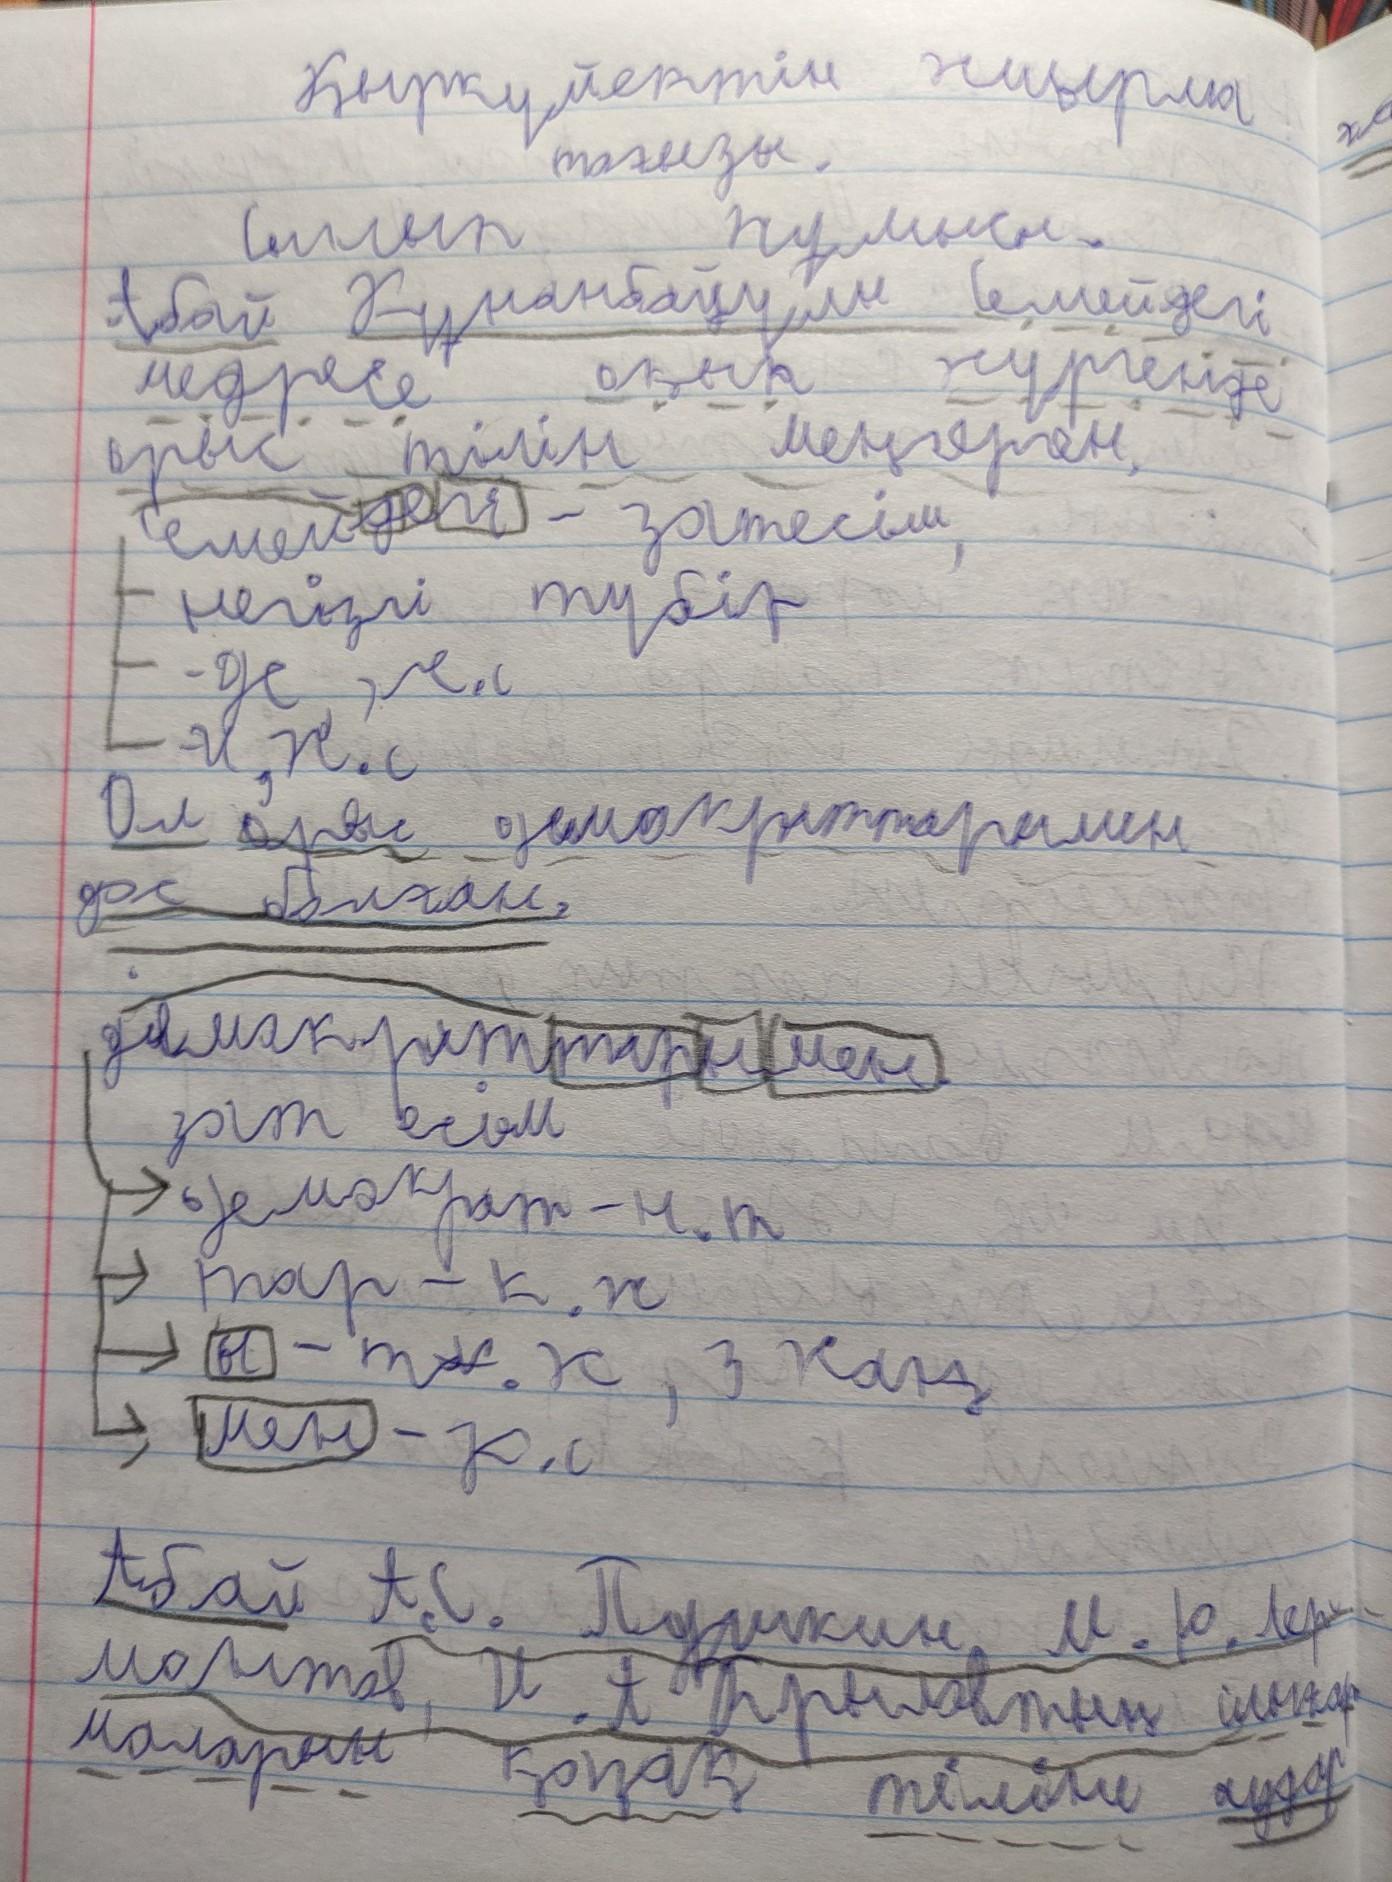 Қыркүйектін жиырма
тоғызы.
Сынып жұмысы.
Абай Құнанбайұлы Семейдегі
медресе оқып жүргенде
орыс тілін меңгерген.
Семейдегі - зат есім,
негізгі түбір
-де, ж.с
-и, ж.с
Ол орыс демократтарымен
дос болған.
демократтарымен
зат есім
демократ - н.т
тар - к.ж
ы - тж.ж, 3 жақ
мен - к.с
Абай А.С. Пушкин, М.Ю. Лер-
монтов, И.А Крыловтың шығар
маларын қазақ тіліне аудар